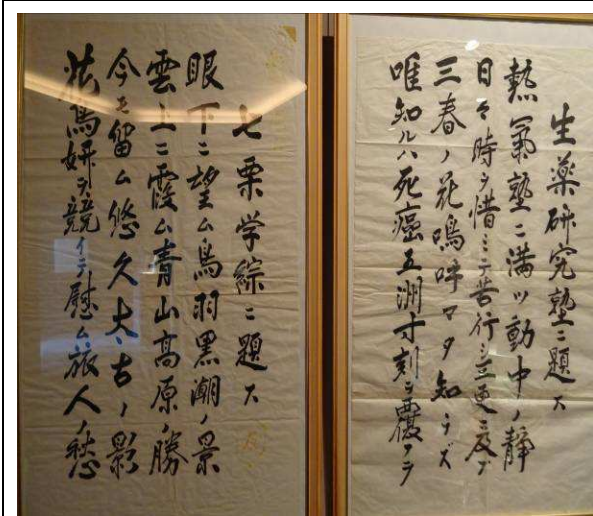 生薬研究塾ニ題ス
熱氣塾ニ満ツ動中ノ静
日々時ヲ惜ミテ苦行シ五更ニ及ブ
三春ノ花鳴呼マタ知ラズ
唯知ルハ死癌五洲寸刻ニ覆フヲ
七栗学綜ニ題ス
眼下ニ望ム鳥羽黒潮ノ景
雲上ニ霞ム青山高原ノ勝
今モ留ム悠久太古ノ影
花鳥妍ヲ競イテ慰ム旅人ノ愁